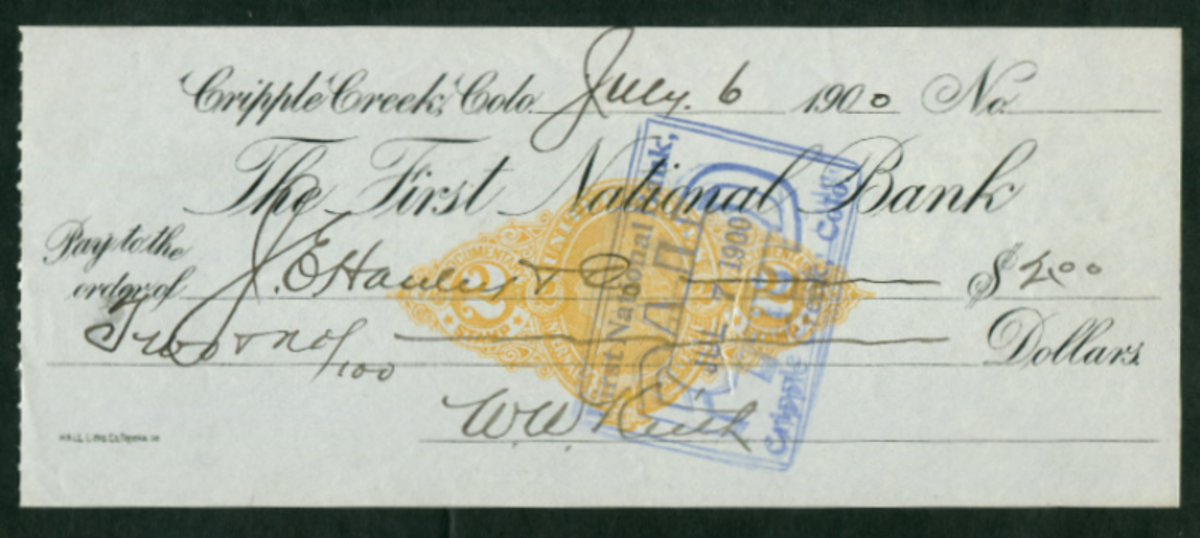 Cripple Creek, Colo. July. 6 1900 No.
The First National Bank
Pay to the
order of J. E. & Co $ 2.00
Two & no/100 Dollars.
W. W.
HALL Litho. Co. Topeka
DOCUMENTARY
UNITED
2 2
STAMP
First National Bank,
PAID
JUL 7 1900
Cripple Creek, Colo.